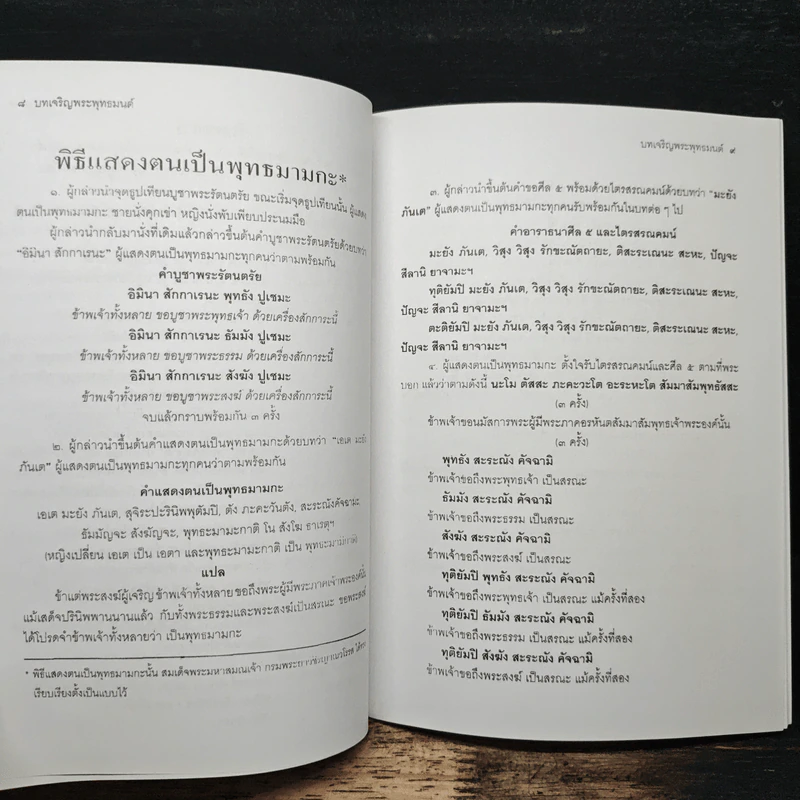 ๘ บทเจริญพระพุทธมนต์
พิธีแสดงตนเป็นพุทธมามกะ*
๑. ผู้กล่าวนำจุดธูปเทียนบูชาพระรัตนตรัย ขณะเริ่มจุดธูปเทียนนั้น ผู้แสดง
ตนเป็นพุทธมามกะ ชายนั่งคุกเข่า หญิงนั่งพับเพียบประนมมือ
ผู้กล่าวนำกลับมานั่งที่เดิมแล้วกล่าวขึ้นต้นคำบูชาพระรัตนตรัยด้วยบทว่า
“อิมินา สักกาเรนะ” ผู้แสดงตนเป็นพุทธมามกะทุกคนว่าตามพร้อมกัน
คำบูชาพระรัตนตรัย
อิมินา สักกาเรนะ พุทธัง ปูเชมะ
ข้าพเจ้าทั้งหลาย ขอบูชาพระพุทธเจ้า ด้วยเครื่องสักการะนี้
อิมินา สักกาเรนะ ธัมมัง ปูเชมะ
ข้าพเจ้าทั้งหลาย ขอบูชาพระธรรม ด้วยเครื่องสักการะนี้
อิมินา สักกาเรนะ สังฆัง ปูเชมะ
ข้าพเจ้าทั้งหลาย ขอบูชาพระสงฆ์ ด้วยเครื่องสักการะนี้
จบแล้วกราบพร้อมกัน ๓ ครั้ง
๒. ผู้กล่าวนำขึ้นต้นคำแสดงตนเป็นพุทธมามกะด้วยบทว่า “เอเต มะยัง
ภันเต” ผู้แสดงตนเป็นพุทธมามกะทุกคนว่าตามพร้อมกัน
คำแสดงตนเป็นพุทธมามกะ
เอเต มะยัง ภันเต, สุจิระปะรินิพพุตัมปิ, ตัง ภะคะวันตัง, สะระณังคัจฉามะ
ธัมมัญจะ สังฆัญจะ, พุทธะมามะกาติ โน สังโฆ ธาเรตุฯ
(หญิงเปลี่ยน เอเต เป็น เอตา และพุทธะมามะกาติ เป็น
แปล
ข้าแต่พระสงฆ์ผู้เจริญ ข้าพเจ้าทั้งหลาย ขอถึงพระผู้มีพระภาคเจ้าพระองค์นั้น
แม้เสด็จปรินิพพานนานแล้ว กับทั้งพระธรรมและพระสงฆ์เป็นสรณะ ขอพระสงฆ์
ได้โปรดจำข้าพเจ้าทั้งหลายว่า เป็นพุทธมามกะ
* พิธีแสดงตนเป็นพุทธมามกะนั้น สมเด็จพระมหาสมณเจ้า
เรียบเรียงตั้งเป็นแบบไว้
บทเจริญพระพุทธมนต์ ๙
๓. ผู้กล่าวนำขึ้นต้นคำขอศีล ๕ พร้อมด้วยไตรสรณคมน์ด้วยบทว่า “มะยัง
ภันเต” ผู้แสดงตนเป็นพุทธมามกะทุกคนรับพร้อมกันในบทต่อ ๆ ไป
คำอาราธนาศีล ๕ และไตรสรณคมน์
มะยัง ภันเต, วิสุง วิสุง รักขะณัตถายะ, ติสะระเณนะ สะหะ, ปัญจะ
สีลานิ ยาจามะฯ
ทุติยัมปิ มะยัง ภันเต, วิสุง วิสุง รักขะณัตถายะ, ติสะระเณนะ สะหะ,
ปัญจะ สีลานิ ยาจามะฯ
ตะติยัมปิ มะยัง ภันเต, วิสุง วิสุง รักขะณัตถายะ, ติสะระเณนะ สะหะ,
ปัญจะ สีลานิ ยาจามะฯ
๔. ผู้แสดงตนเป็นพุทธมามกะ ตั้งใจรับไตรสรณคมน์และศีล ๕ ตามที่พระ
บอก แล้วว่าตามดังนี้ นะโม ตัสสะ ภะคะวะโต อะระหะโต สัมมาสัมพุทธัสสะ
(๓ ครั้ง)
ข้าพเจ้าขอนมัสการพระผู้มีพระภาคอรหันตสัมมาสัมพุทธเจ้าพระองค์นั้น
(๓ ครั้ง)
พุทธัง สะระณัง คัจฉามิ
ข้าพเจ้าขอถึงพระพุทธเจ้า เป็นสรณะ
ธัมมัง สะระณัง คัจฉามิ
ข้าพเจ้าขอถึงพระธรรม เป็นสรณะ
สังฆัง สะระณัง คัจฉามิ
ข้าพเจ้าขอถึงพระสงฆ์ เป็นสรณะ
ทุติยัมปิ พุทธัง สะระณัง คัจฉามิ
ข้าพเจ้าขอถึงพระพุทธเจ้า เป็นสรณะ แม้ครั้งที่สอง
ทุติยัมปิ ธัมมัง สะระณัง คัจฉามิ
ข้าพเจ้าขอถึงพระธรรม เป็นสรณะ แม้ครั้งที่สอง
ทุติยัมปิ สังฆัง สะระณัง คัจฉามิ
ข้าพเจ้าขอถึงพระสงฆ์ เป็นสรณะ แม้ครั้งที่สอง